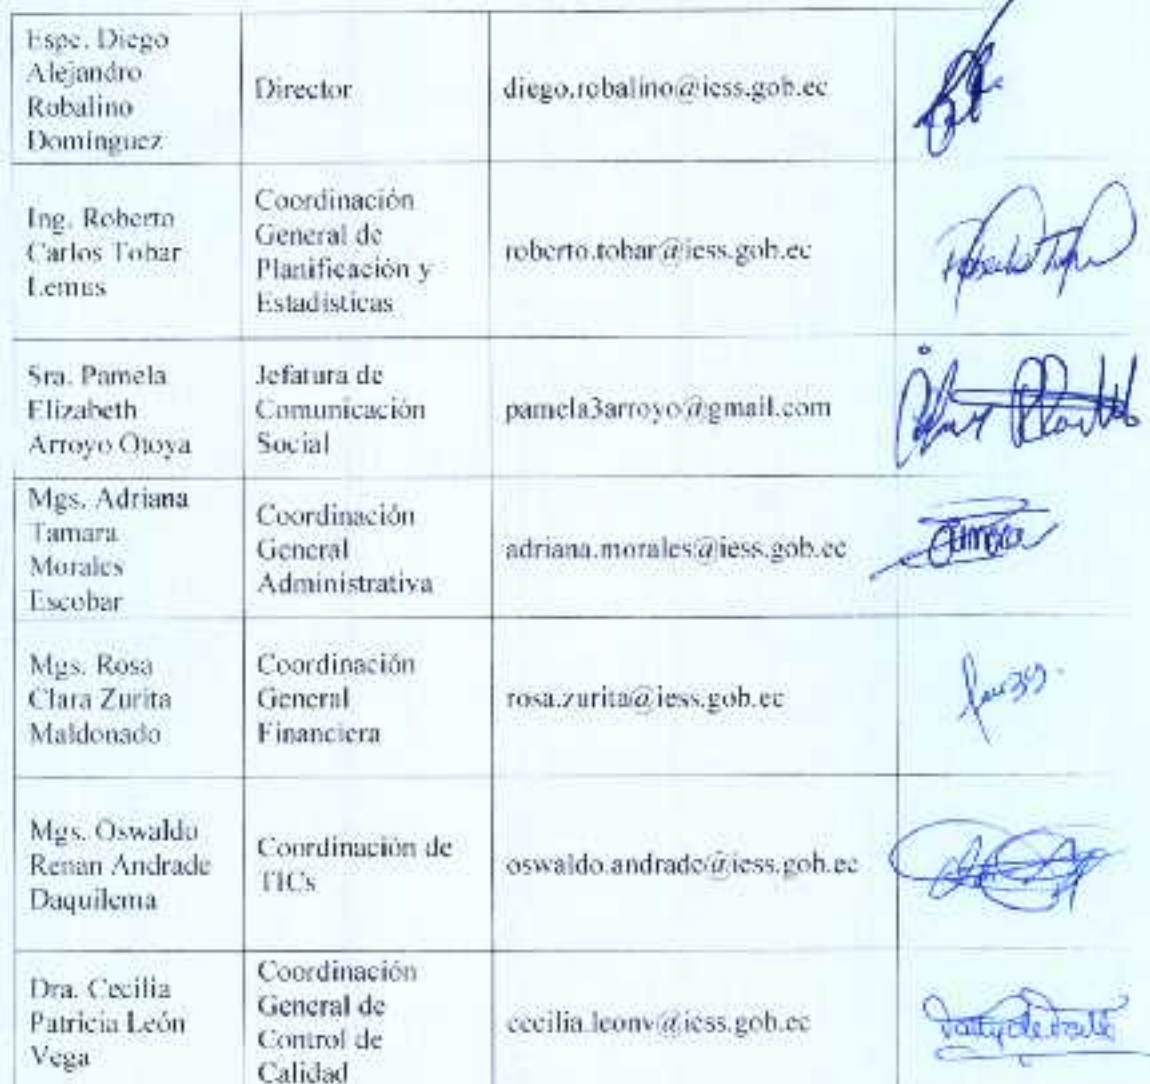 Espc. Diego
Alejandro
Robalino
Dominguez
Director
diego.robalino@iess.gob.ec
Ing. Roberto
Carlos Tobar
Lemus
Coordinación
General de
Planificación y
Estadísticas
roberto.tobar@iess.gob.ec
Sra. Pamela
Elizabeth
Arroyo Otoya
Jefatura de
Comunicación
Social
pamela3arroyo@gmail.com
Mgs. Adriana
Tamara
Morales
Escobar
Coordinación
General
Administrativa
adriana.morales@iess.gob.ec
Mgs. Rosa
Clara Zurita
Maldonado
Coordinación
General
Financiera
rosa.zurita@iess.gob.ec
Mgs. Oswaldo
Renan Andrade
Daquilema
Coordinación de
TICs
oswaldo.andrade@iess.gob.ec
Dra. Cecilia
Patricia León
Vega
Coordinación
General de
Control de
Calidad
cecilia.leonv@iess.gob.ec